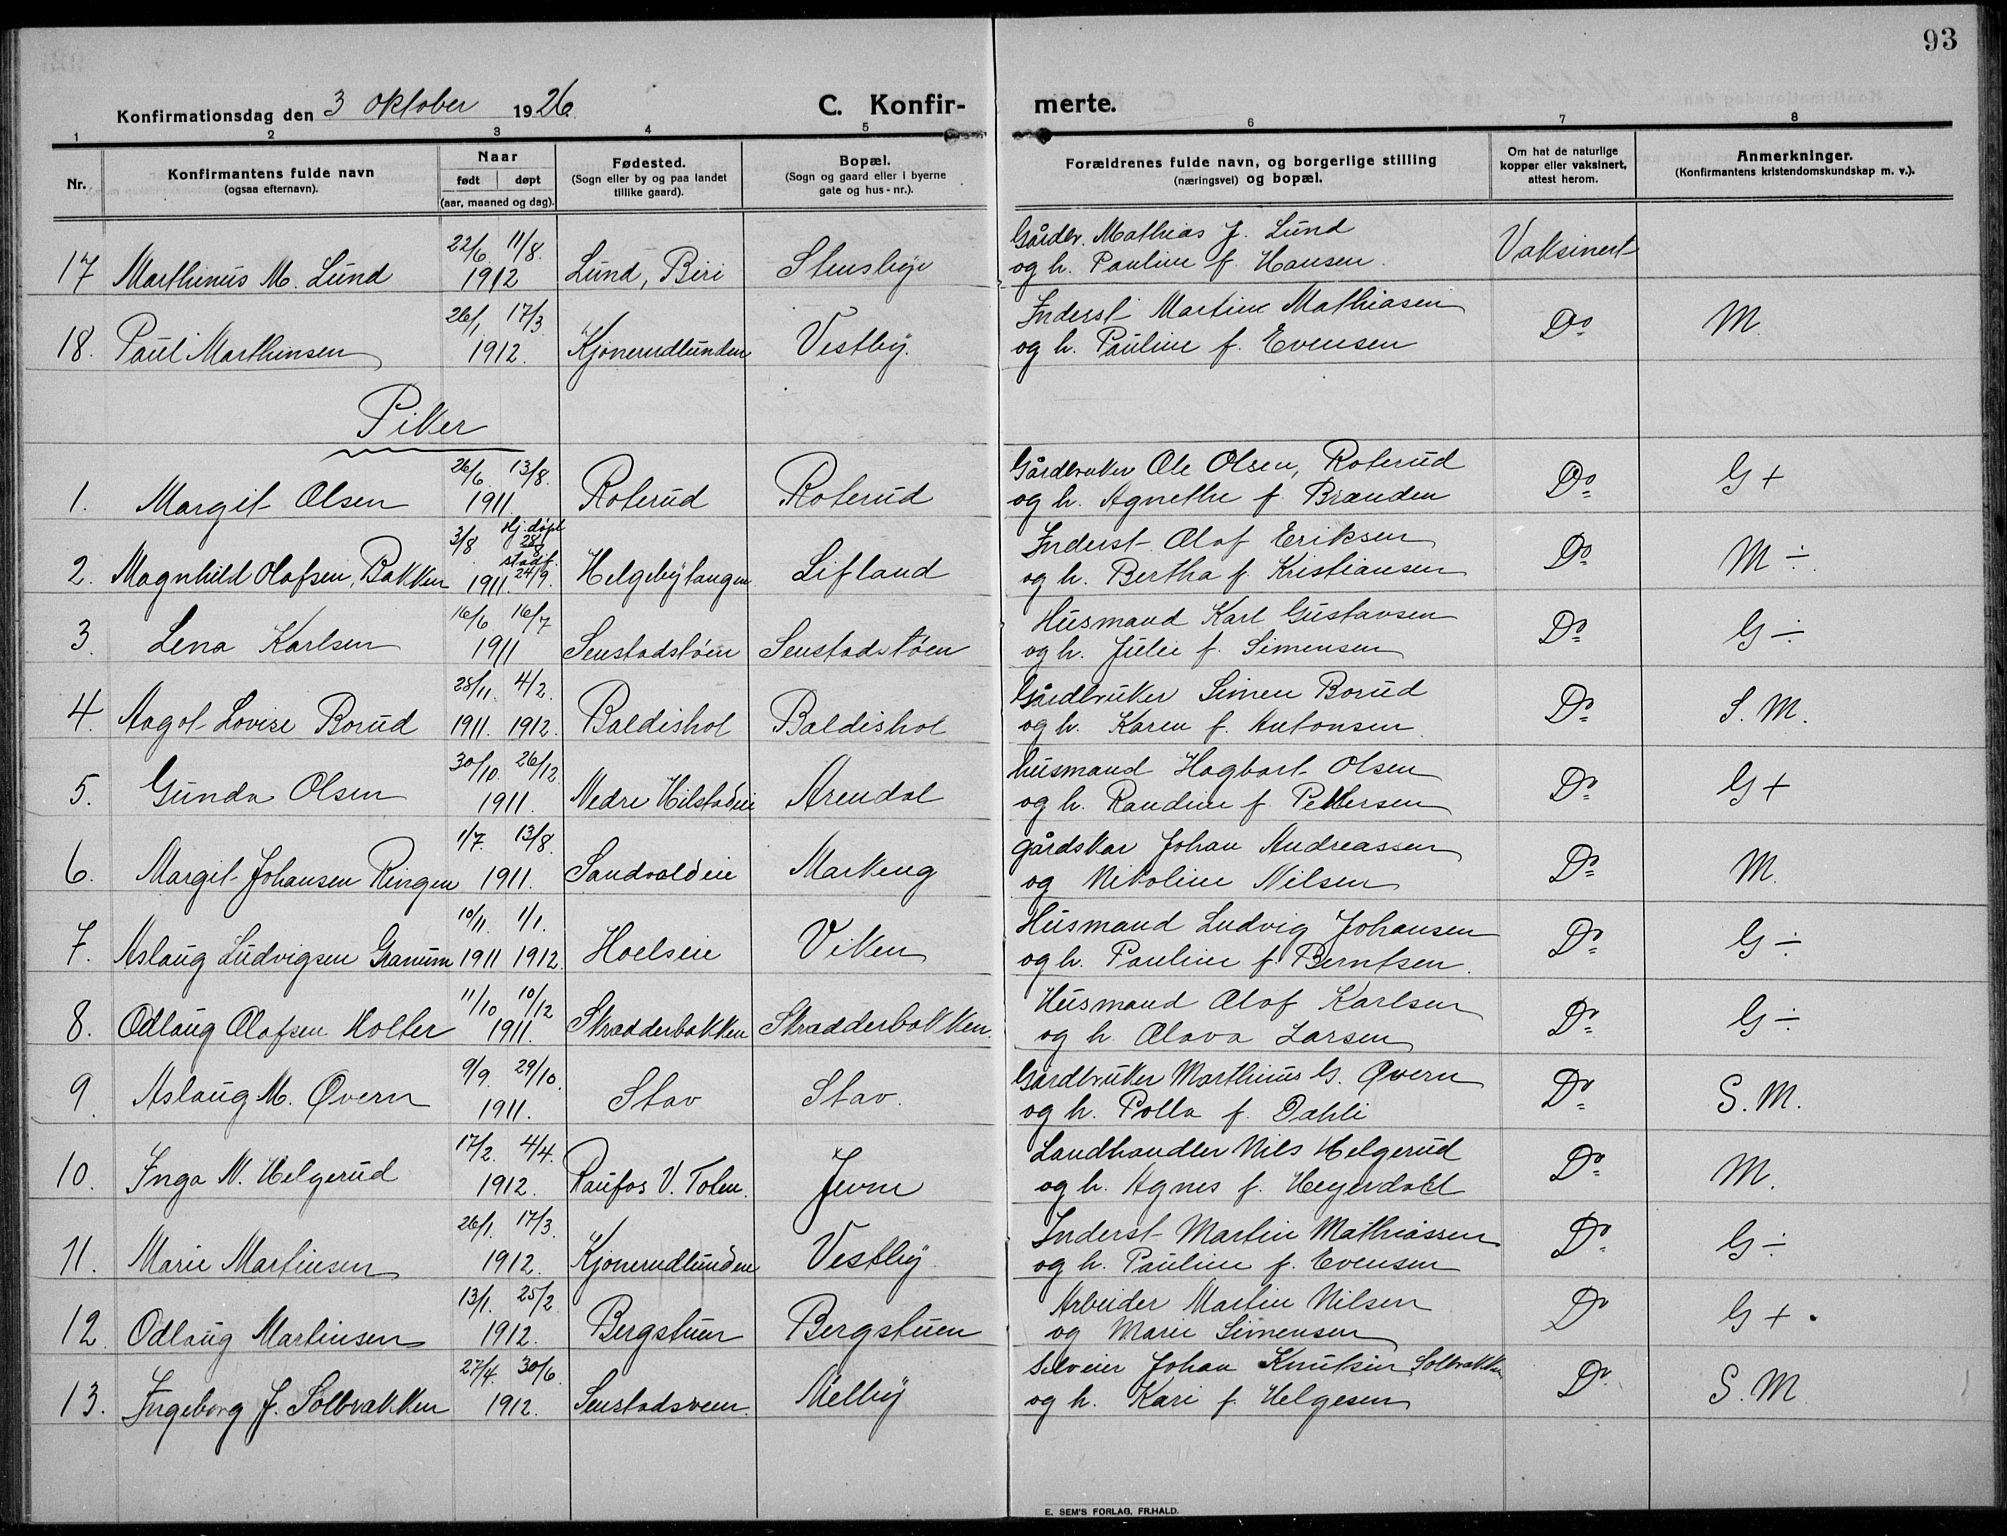 93
Konfirmationsdag den 3 oktober 1926. C. Konfir- merte.
1 2 3 4 5 6 7 8
Nr. Konfirmantens fulde navn (ogsaa efternavn). Naar født døpt (aar, maaned og dag). Fødested. (Sogn eller by og paa landet tillike gaard). Bopæl. (Sogn og gaard eller i byerne gate og hus-nr.). Forældrenes fulde navn, og borgerlige stilling (næringsvei) og bopæl. Om hat de naturlige kopper eller vaksinert, attest herom. Anmerkninger. (Konfirmantens kristendomskundskap m. v.).
22/6. 11/8. Gårdbr. Mathias J. Lund
17 Marthinus M. Lund 1912 Lund, Biri Stensbye og h. Pauline f. Hansen. Vaksinert
26/1 17/3 Inderst Martin Mathiasen
18. Paul Marthinsen 1912. Kjonerudlunden Vestby. og h. Pauline f. Evensen Do M.
Piker
26/6. 13/8. Gårdbruker Ole Olsen, Roterud
1. Margit Olsen 1911. Roterud Roterud og h. Agnethe f. Brænden Do G +
3/8 hj.døpt 28/8 stadf. Inderst Olof Eriksen
2. Magnhild Olafsen, Bakken 1911. 24/9. Helgebytangen Lifland og h. Bertha f. Kristiansen Do M ÷
16/6 16/7 Husmand Karl Gustavsen
3. Lena Karlsen 1911 Senstadstøen Senstadstøen og h. Julie f. Simensen Do G ÷
28/11. 4/2. Gårdbruker Simen Borud
4. Aagot Lovise Borud 1911. 1912. Baldishol Baldishol og h. Karen f. Antonsen. Do S. M.
30/10. 26/12. husmand Hagbart Olsen
5. Gunda Olsen 1911. Nedre Hilstadeie Arendal og h. Randine f. Pettersen Do G +
1/7. 13/8. gårdskar Johan Andreassen
6. Margit Johansen Ringen 1911. Sandvoldeie Markeng og Nikoline Nilsen Do M.
10/11. 1/1. Husmand Ludvig Johansen
7. Aslaug Ludvigsen Granum 1911 1912. Hoelseie Viken og h. Pauline f. Berntsen. Do G ÷
11/10 10/12 Husmand Olof Karlsen
8. Odlaug Olafsen Holter 1911. Skrædderbakken Skrædderbakken. og h Olava Larsen Do G ÷
9/9. 29/10. Gårdbruker Marthinus G. Øvern
9. Aslaug M. Øvern 1911. Stav Stav. og h. Polla f. Dahli Do S. M.
17/2. 4/4. Landhandler Nils Helgerud
10. Inga N. Helgerud 1912. Raufos V. Toten. Jevne og h. Agnes f. Heyerdahl Do M.
26/1. 17/3. Inderst Martin Mathiassen
11. Marie Martinsen 1912. Kjonerudlunden Vestby og h. Pauline f. Evensen Do G ÷
13/1. 25/2. Arbeider Martin Nilsen
12. Odlaug Martinsen 1912. Bergstuen Bergstuen og Marie Simensen Do G + .
27/4. 30/6. Selveier Johan Knutsen Solbrakken
13. Ingeborg J. Solbrakken 1912. Senstadsveen. Melby og h. Kari f. Helgesen Do S. M
E. SEM'S FORLAG, FR.HALD.